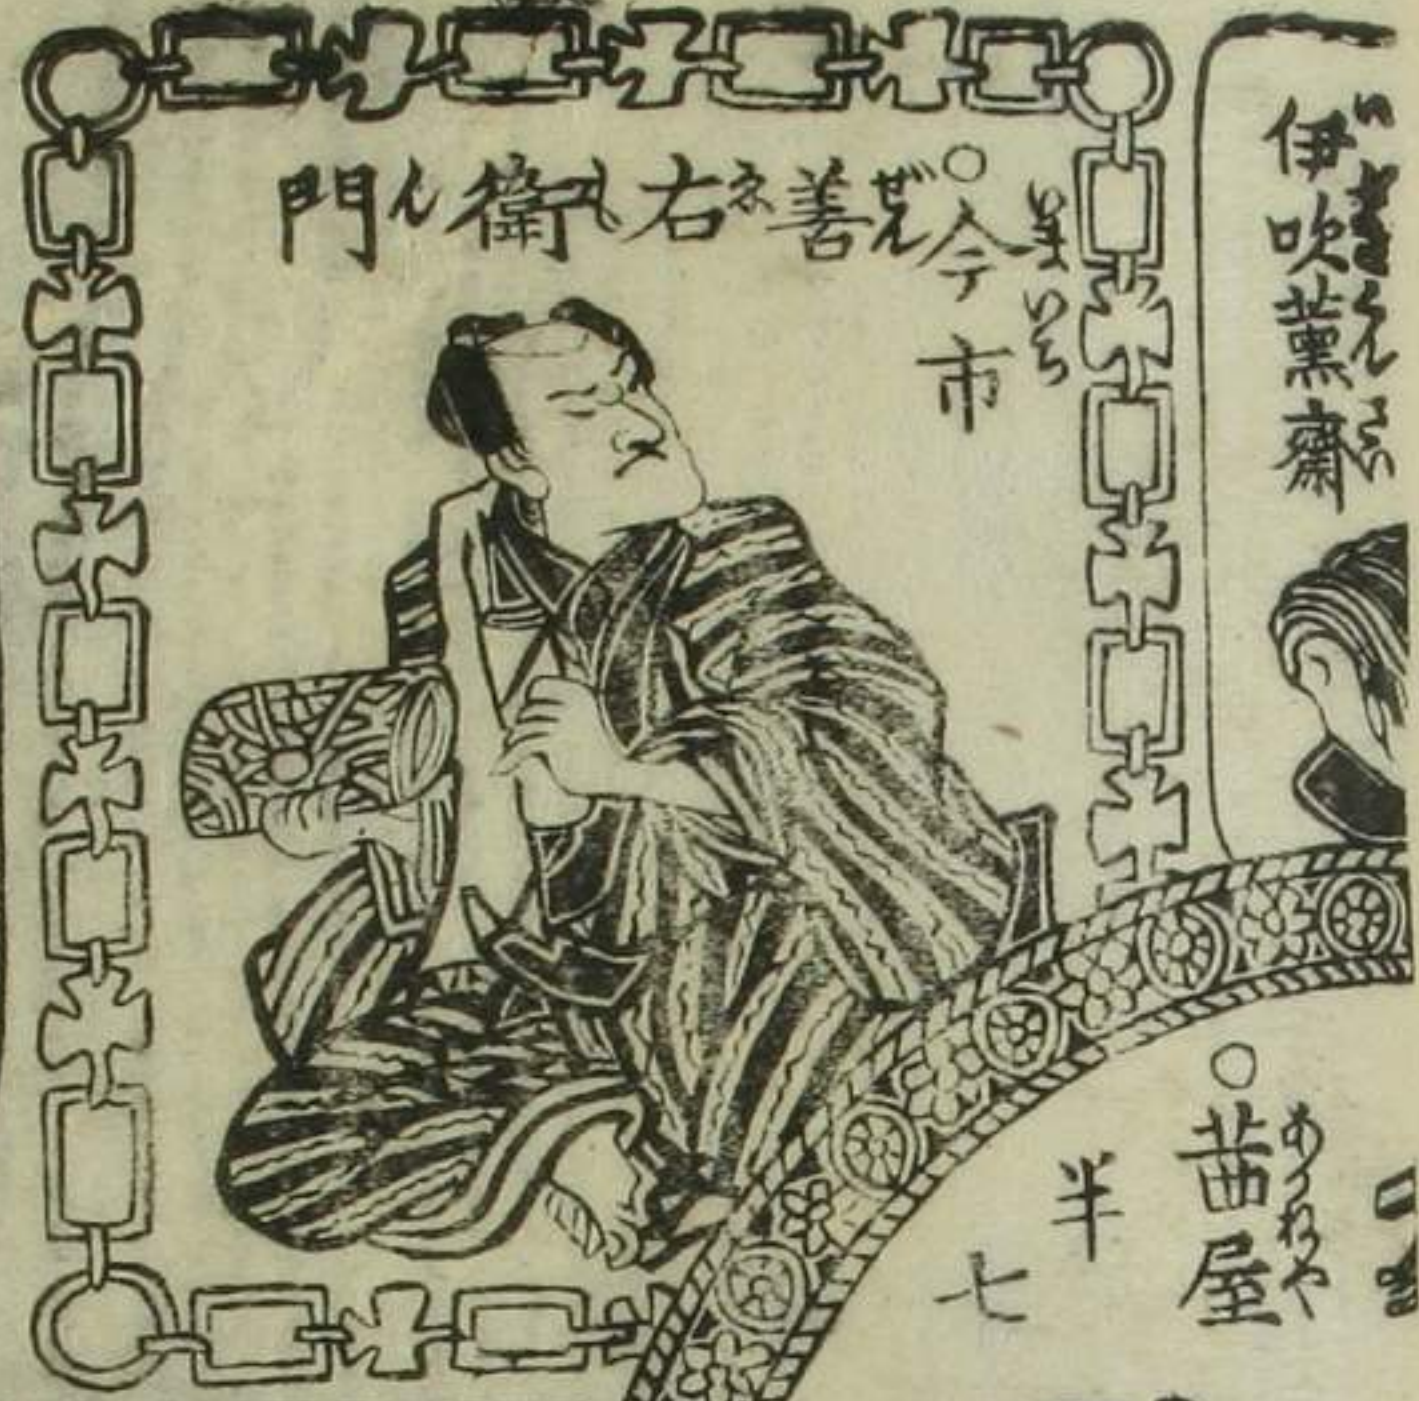 伊吹薫齋
いぶきくんさい
○今市
いまいち
善右衛門
ぜんゑもん
○茜屋
あかねや
半七